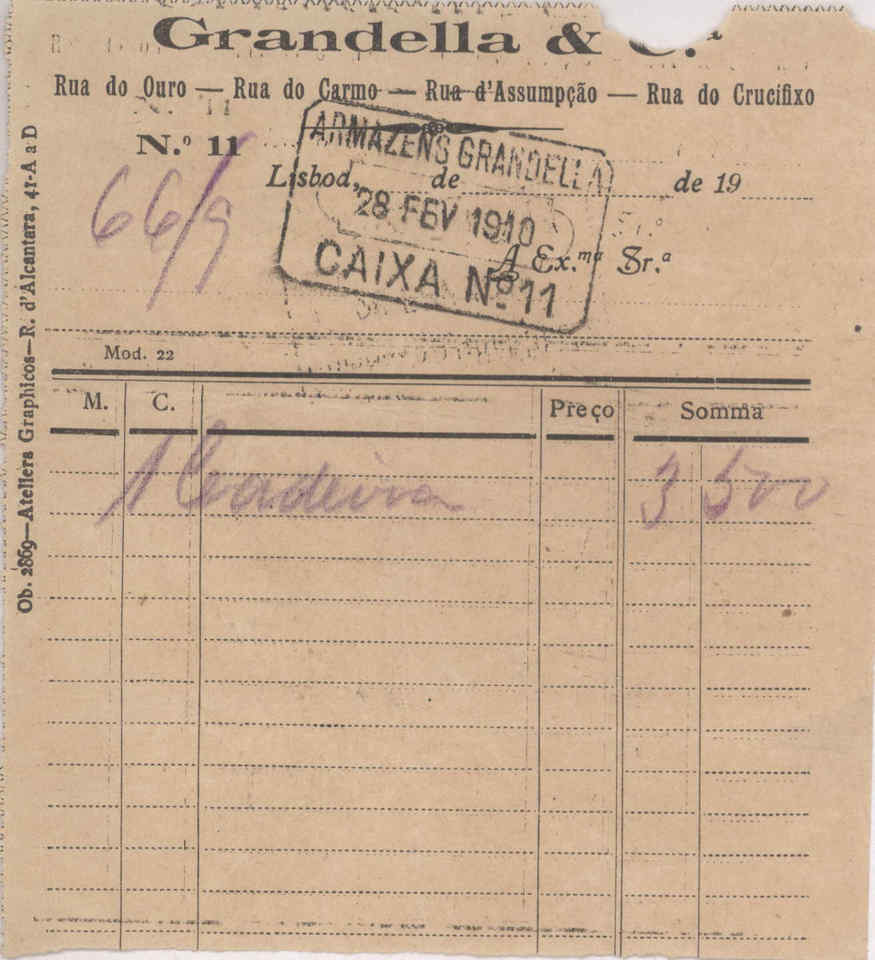 Grandella & C.ª
Rua do Ouro — Rua do Carmo — Rua d'Assumpção — Rua do Crucifixo
N.º 11
66/9
Lisboa, de de 19
ARMAZENS GRANDELLA
28 FEV 1910
CAIXA Nº 11
A Ex.ma Sr.ª
Mod. 22
M. C. Preço Somma
1 Cadeira 3 500
Ob. 2869—Ateliers Graphicos—R. d'Alcantara, 41-A a D